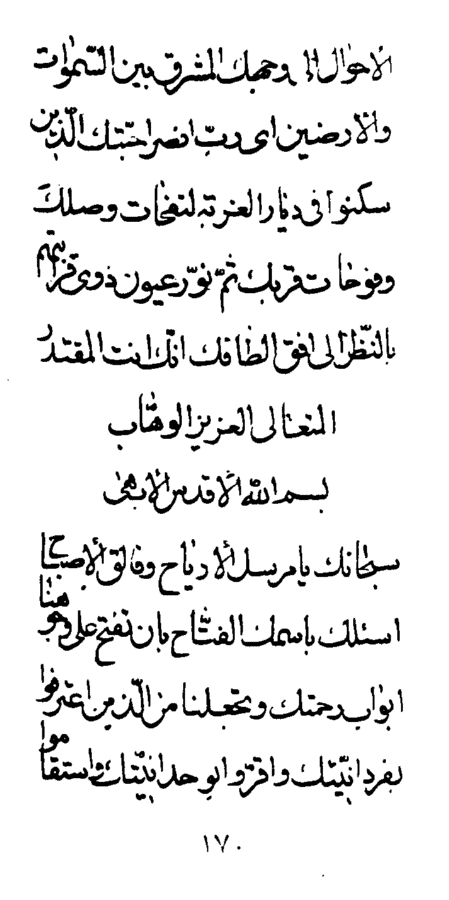 الاحوال الی وجهك المشرق بین السّموات
والارضین ای ربّ انصر احبّتك الّذین
سکنوا فی دیار الغربة لنفحات وصلكَ
وفوحات قربك ثمّ نوّر عیون ذوی قرابتهم
بالنّظر الی افق الطافك انّك انت المقتدر
المتعالی العزیز الوهّاب
بسم الله الاقدس الابهی
سبحانك یا مرسل الاریاح وفالق الاصباح
اسئلك باسمك الفتّاح بان تفتح علی وجوهنا
ابواب رحمتك وتجعلنا من الّذین اعترفوا
بفردانیّتك واقرّوا بوحدانیّتك واستقاموا
١٧٠